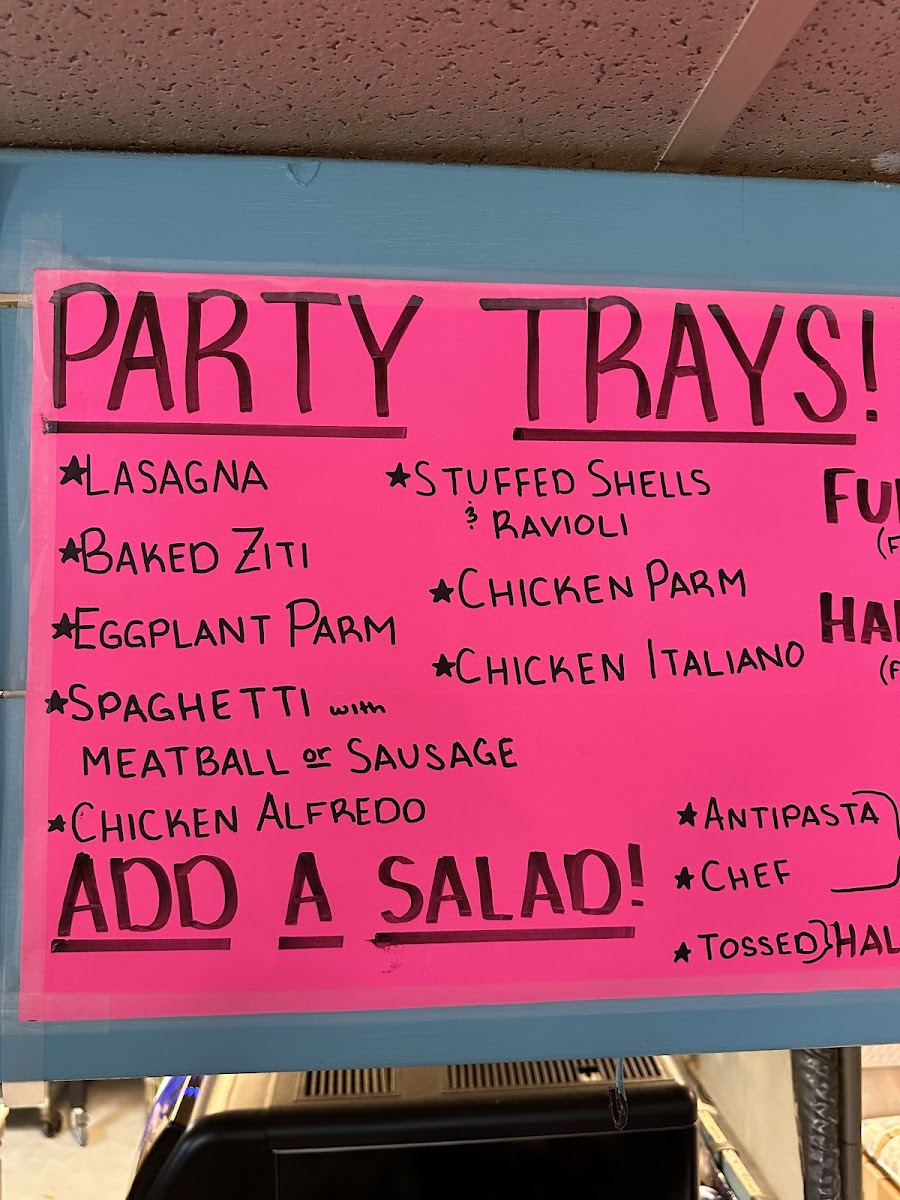 PARTY TRAYS!
★LASAGNA
★BAKED ZITI
★EGGPLANT PARM
★SPAGHETTI with
MEATBALL or SAUSAGE
★CHICKEN ALFREDO
★STUFFED SHELLS
& RAVIOLI
★CHICKEN PARM
★CHICKEN ITALIANO
ADD A SALAD!
★ANTIPASTA
★CHEF
★TOSSED}